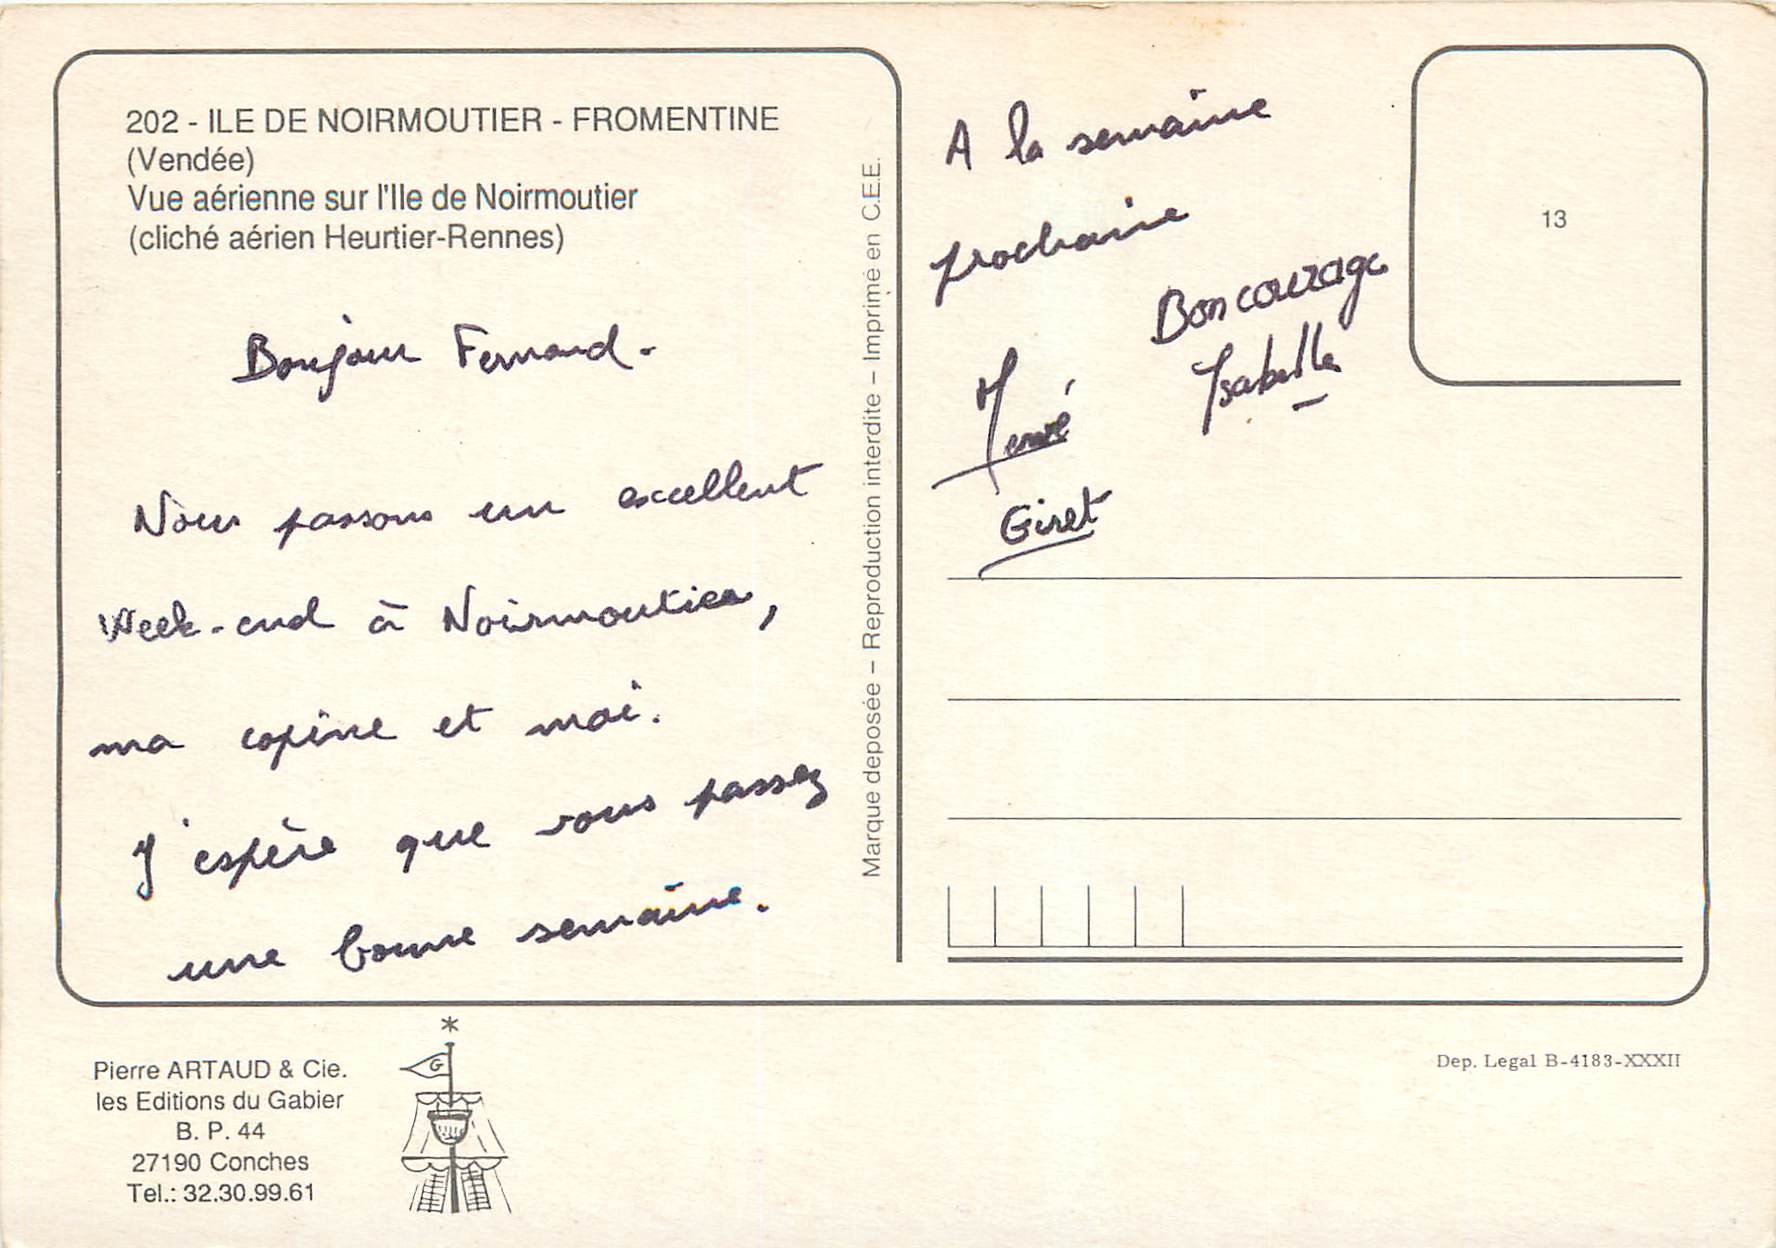 202 - ILE DE NOIRMOUTIER - FROMENTINE
(Vendée)
Vue aérienne sur l'Ile de Noirmoutier
(cliché aérien Heurtier-Rennes)
Bonjour Fernand.
Nous passons un excellent
Week-end à Noirmoutier,
ma copine et moi.
J'espère que vous passez
une bonne semaine.
Marque deposée – Reproduction interdite – Imprimé en C.E.E.
A la semaine
prochaine
Bon courage
Isabelle
Hervé
Giret
13
Pierre ARTAUD & Cie.
les Editions du Gabier
B. P. 44
27190 Conches
Tel.: 32.30.99.61
G
Dep. Legal B-4183-XXXII